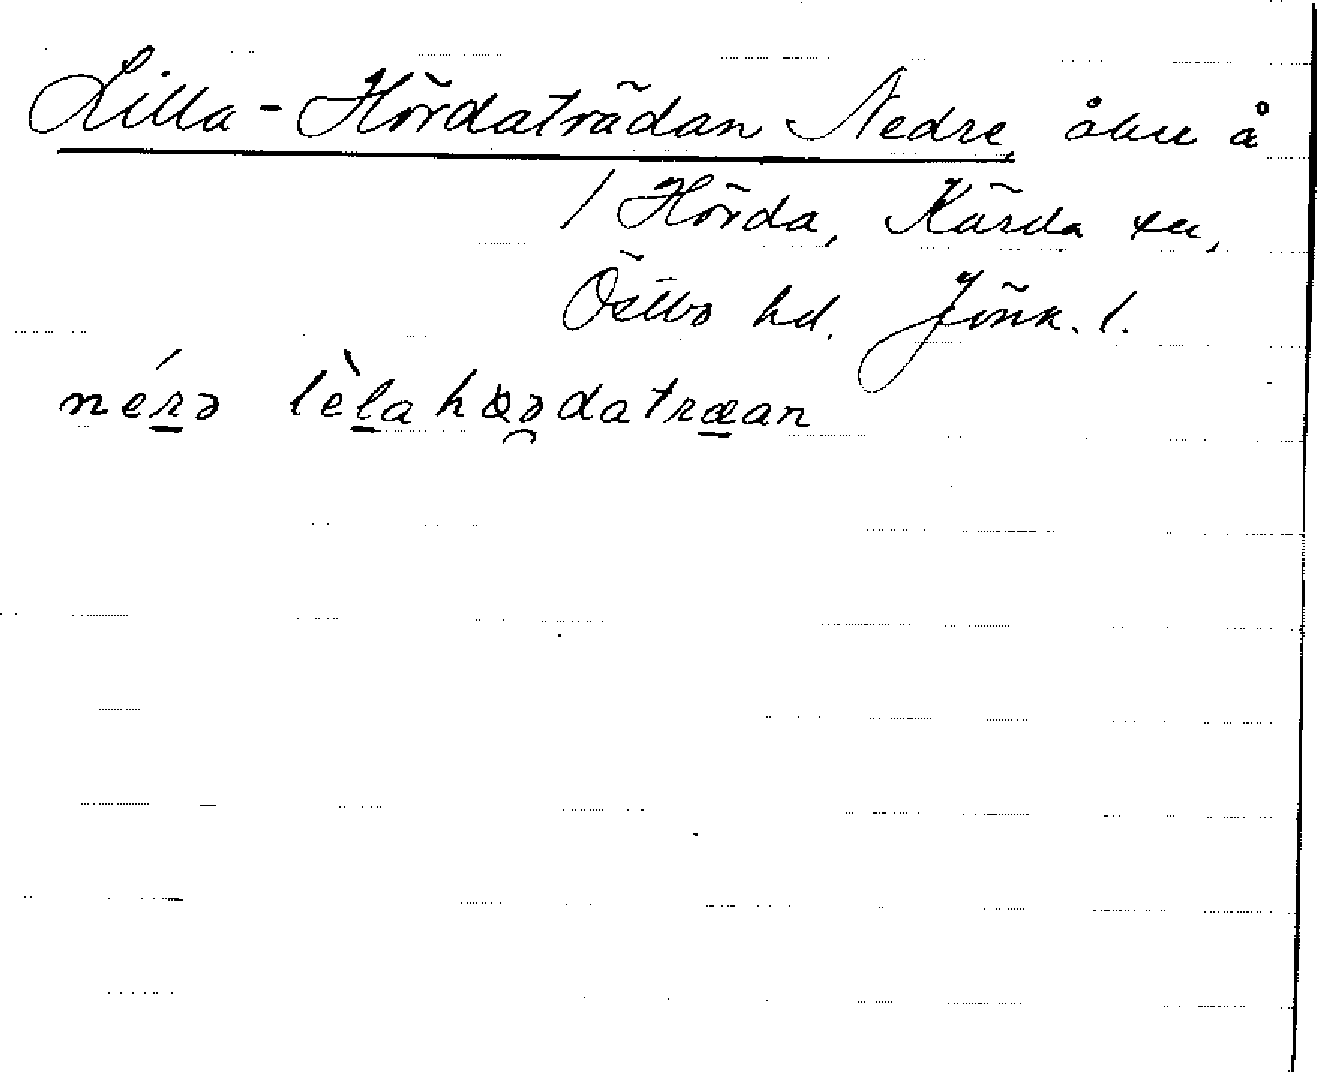 Lilla-Hördaträdan Nedre, åker å
1 Hörda, Kärda sn,
Östbo hd. Jönk. l.
nérə lèla hœ̞ədatræan